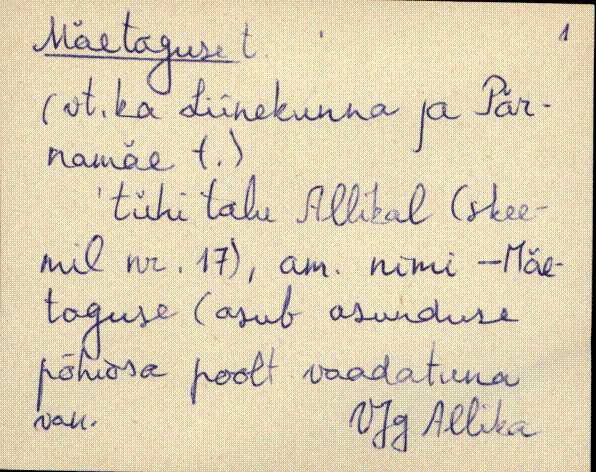 Mäetaguse t. 1
(vt. ka Liinekunna ja Pär-
namäe t.)
tühi talu Allikal (skee-
mil nr. 17), am. nimi - Mäe-
taguse (asub asunduse
põhiosa poolt vaadatuna
van. VJg Allika